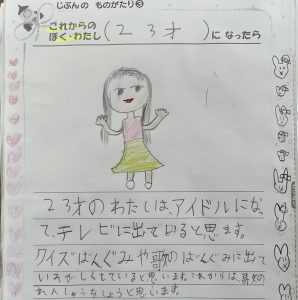 じぶんの ものがたり③
これからの
ぼく・わたし
(23才)になったら
23才のわたしは、アイドルになっ
て、テレビに出ていると思います。
クイズばんぐみや歌のばんぐみに出て
います。これからは歌の
れんしゅうをしようと思います。